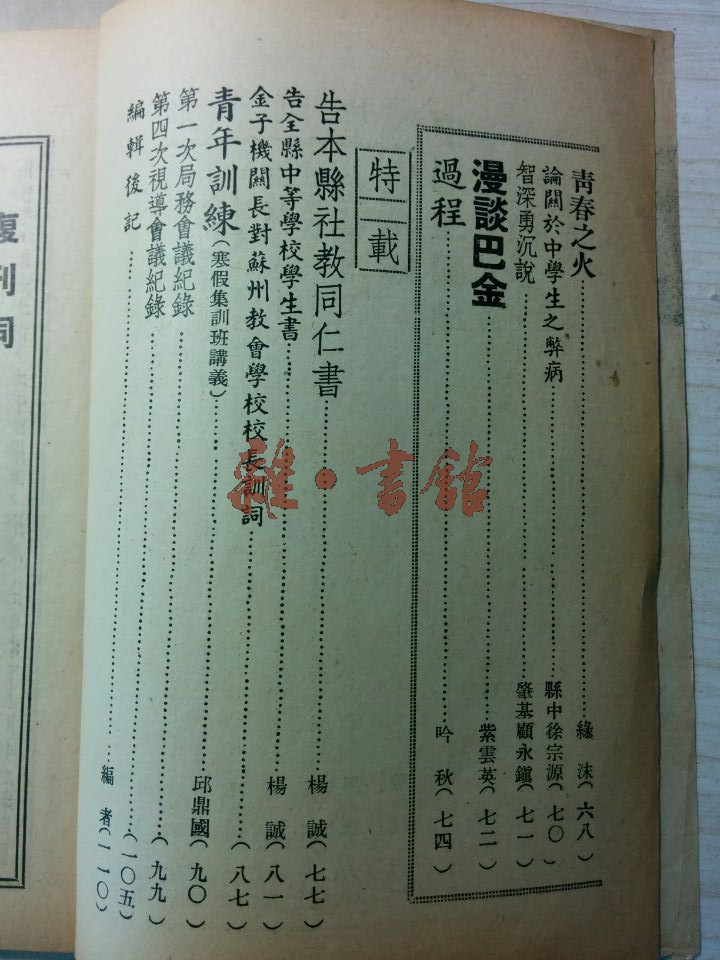 青春之火……綠沫(六八)
論關於中學生之弊病……縣中徐宗源(七〇)
智深勇沉說……肇基顧永鎮(七一)
漫談巴金……紫雲英(七二)
過程……吟秋(七四)
特載
告本縣社教同仁書……楊誠(七七)
告全縣中等學校學生書……楊誠(八一)
金子機關長對蘇州教會學校校長訓詞……(八七)
青年訓練(寒假集訓班講義)……邱鼎國(九〇)
第一次局務會議紀錄……(九九)
第四次視導會議紀錄……(一〇五)
編輯後記……編者(一一〇)
復刊詞
雜·書館